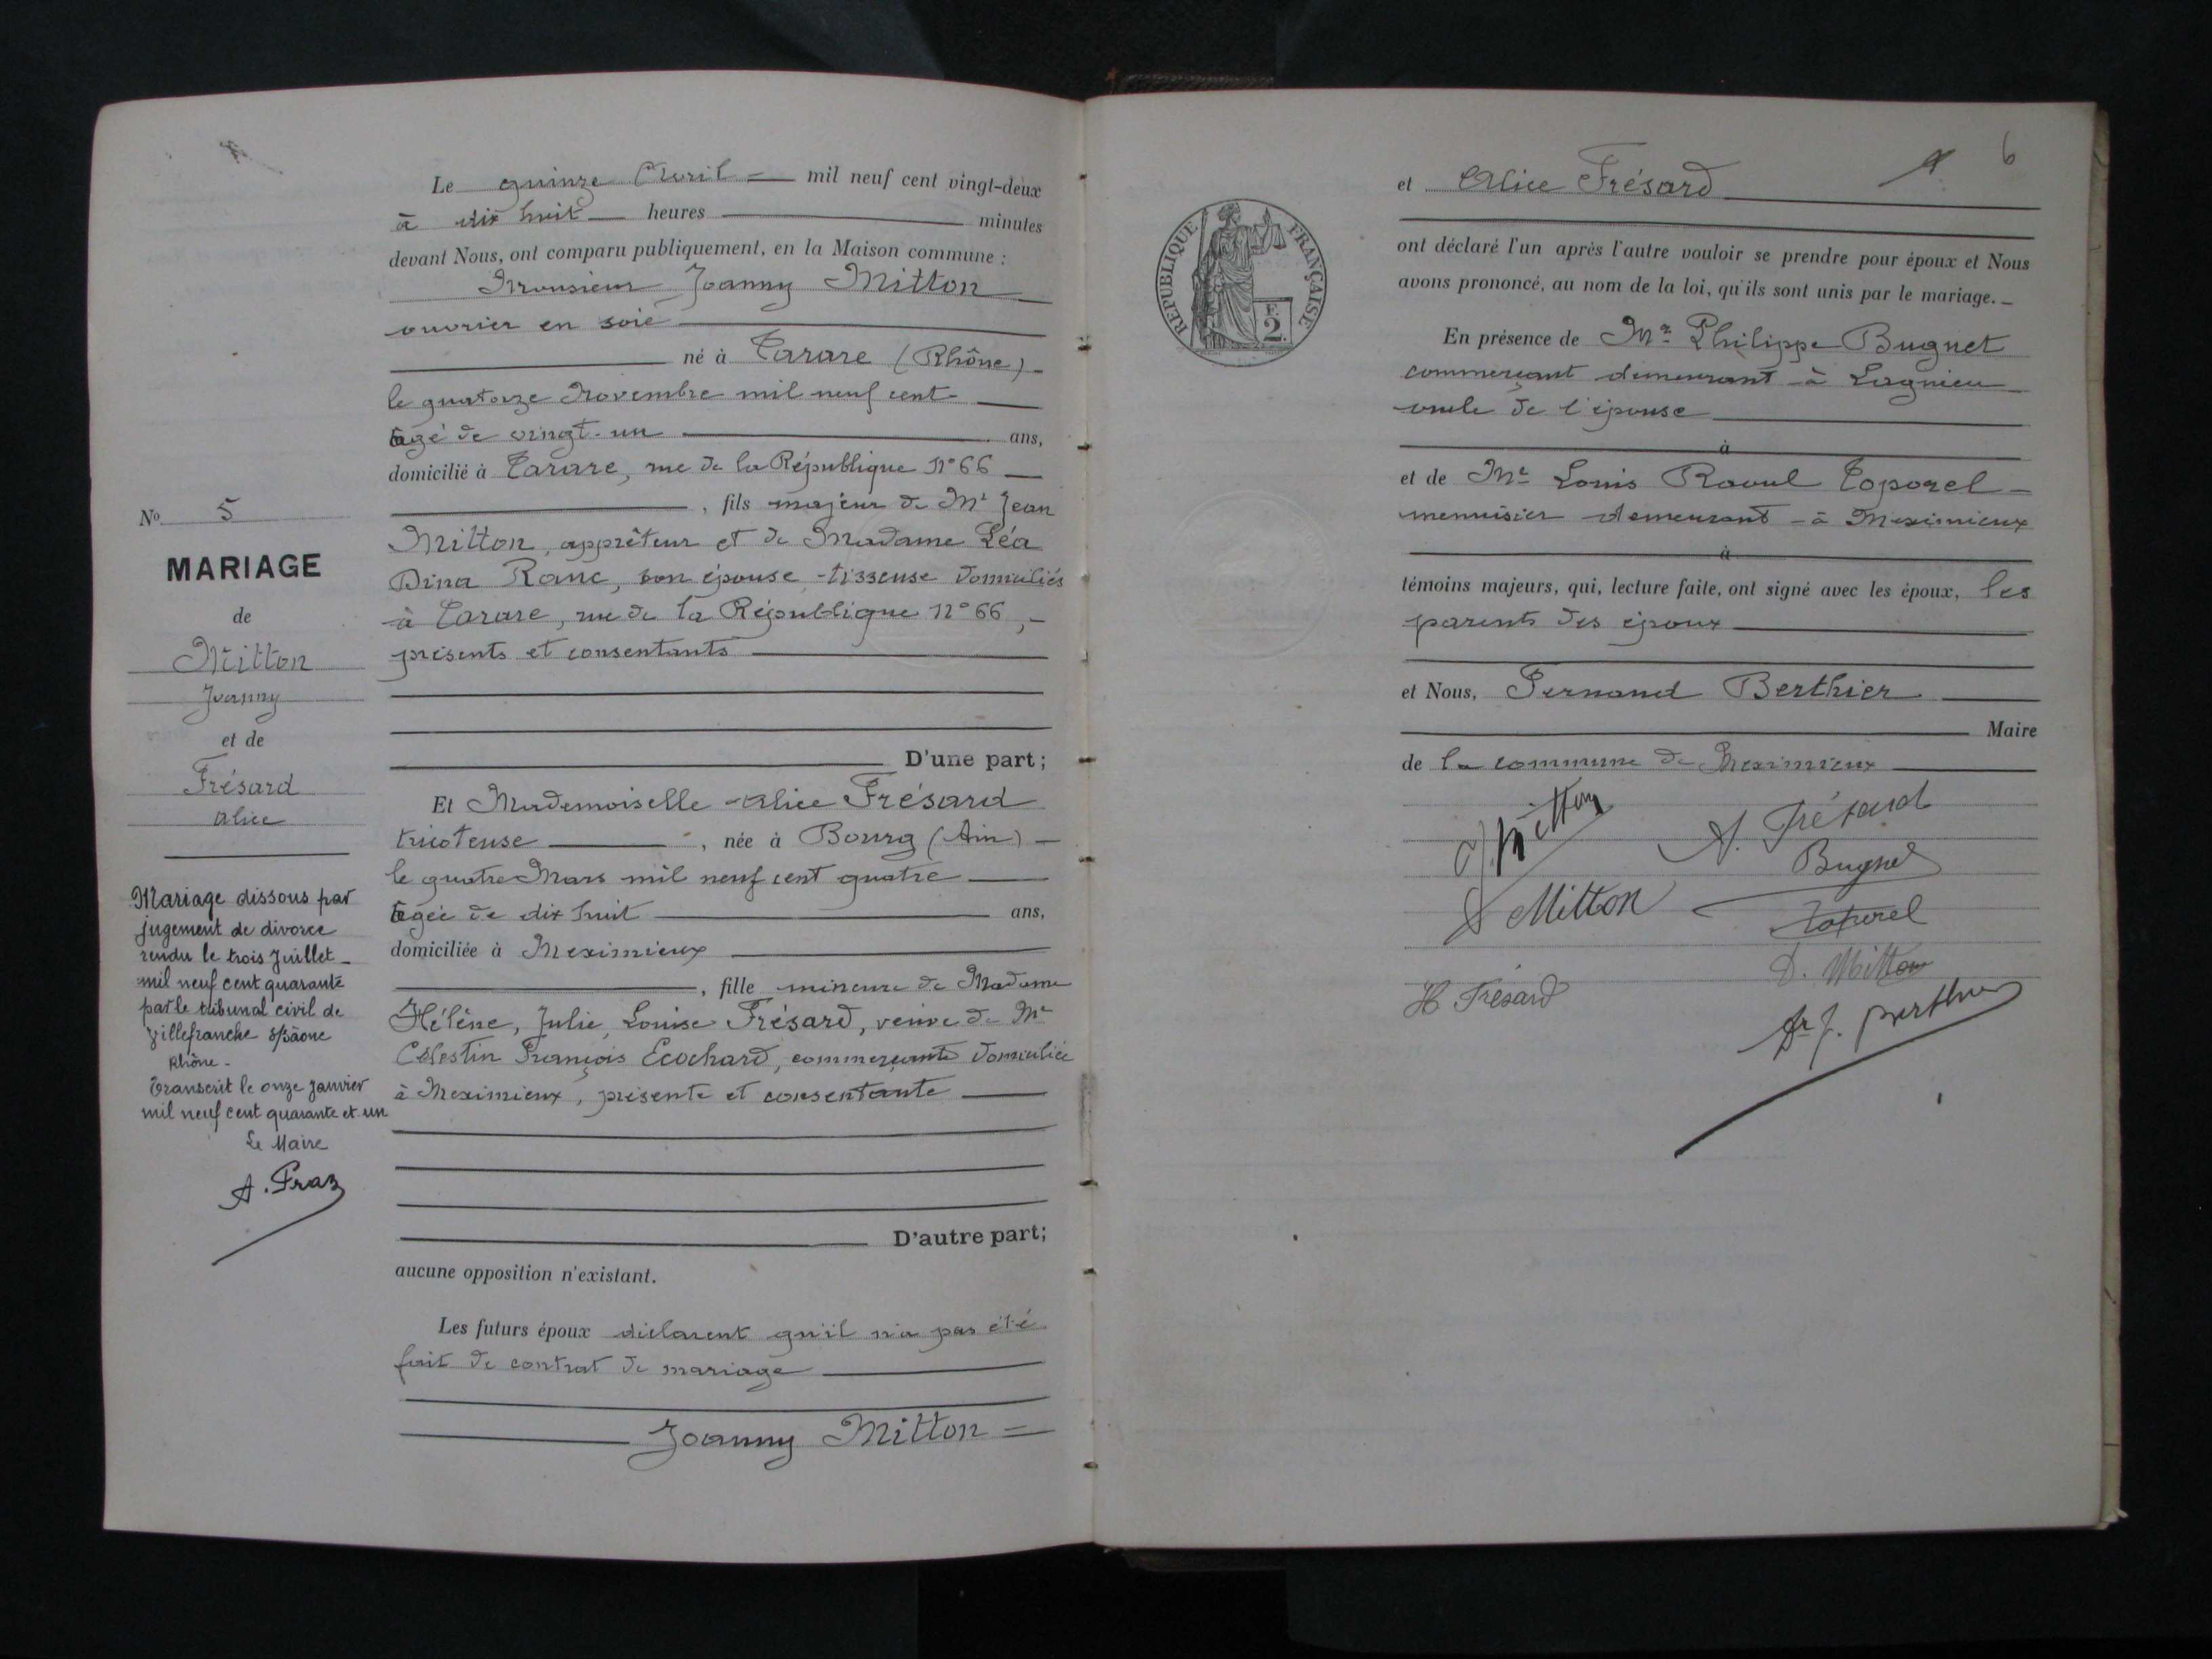 Le quinze Avril = mil neuf cent vingt-deux
à dix huit heures minutes
devant Nous, ont comparu publiquement, en la Maison commune :
Monsieur Joanny Mitton
ouvrier en soie
né à Tarare (Rhône)
le quatorze Novembre mil neuf cent
âgé de vingt-un ans,
domicilié à Tarare, rue de la République N° 66
, fils majeur de Mr Jean
Mitton, apprêteur et de Madame Léa
Dina Ranc, son épouse, tisseuse domiciliés
à Tarare, rue de la République N° 66,
présents et consentants
D'une part;
Et Mademoiselle Alice Frésard
tricoteuse , née à Bourg (Ain)
le quatre Mars mil neuf cent quatre
âgée de dix huit ans,
domiciliée à Meximieux
, fille mineure de Madame
Hélène, Julie, Louise Frésard, veuve de Mr
Célestin François Ecochard, commerçante domiciliée
à Meximieux, présente et consentante
D'autre part;
aucune opposition n'existant.
Les futurs époux déclarent qu'il n'a pas été
fait de contrat de mariage
Joanny Mitton =
No 5
MARIAGE
de
Mitton
Joanny
et de
Frésard
Alice
Mariage dissous par
jugement de divorce
rendu le trois Juillet
mil neuf cent quarante
par le tribunal civil de
Villefranche s/Saône
Rhône.
Transcrit le onze Janvier
mil neuf cent quarante et un
Le Maire
A. Praz
6
RÉPUBLIQUE FRANÇAISE
F.
2.
et Alice Frésard
ont déclaré l'un après l'autre vouloir se prendre pour époux et Nous
avons prononcé, au nom de la loi, qu'ils sont unis par le mariage.
En présence de Mr Philippe Bugnet
commerçant demeurant à Lagnieu
oncle de l'épouse
à
et de Mr Louis Raoul Toporel
menuisier demeurant à Meximieux
à
témoins majeurs, qui, lecture faite, ont signé avec les époux, les
parents des époux
et Nous, Fernand Berthier
Maire
de la commune de Meximieux
J. Mitton
A. Frésard
Bugnet
Mitton
Toporel
D. Mitton
H Frésard
Dr f. Berthier